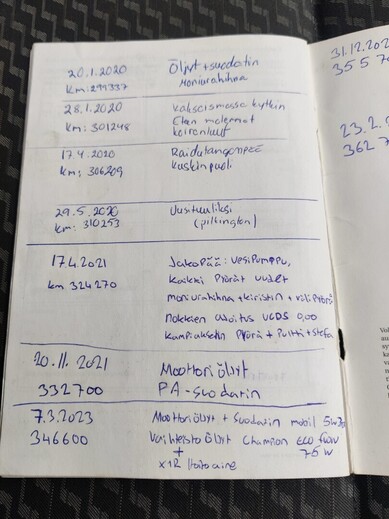 20.1.2020 Öljyt + suodatin
km: 299337 Moniurahihna
28.1.2020 vakiosismassa kytkin
km: 301248 Etan molemmat
koiranluut
17.4.2020 Raidetangonpää
km: 306209 kuskinpuoli
29.5.2020 Uusi tuulilasi
km: 310253 (pilkington)
17.4.2021 Jakopää: vesipumppu,
km 324270 kaikki Pyörät uudet
moniurahihna + kiristin + välipyörä
Nokkien ajoitus VCDS 0,00
kampiakselin Pyörä + Pultti + stefa
20.11.2021 Moottoriöljyt
332700 PA-suodatin
7.3.2023 Moottoriöljyt + suodatin mobil 5w30
346600 Vaihteisto Öljyt Champion eco flow
+ 75 W
x1R lisäaine
31.12.202
355 7
23.2.
362 7